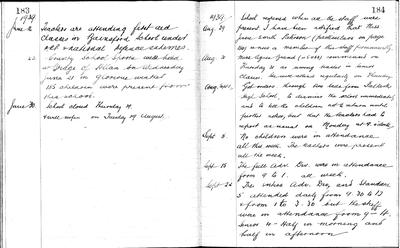 183
1939
June 2 Teachers are attending first aid
classes in Bainsford School under
act & national defence schemes.
County school sports were held
at Bridge of Allan on Wednesday
June in glorious weather
115 children were present from
this school.
June 30 School closed Thursday
& will resume on Tuesday 29 August.
184
1939
Aug 29 School reopened when all the staff were
present. I have been notified that Miss
Jane Smith Robertson (particulars on page
) is now a member of this staff permanently
Aug 3 Miss Agnes Grant commenced on
Tuesday to do sewing classes in
classes. She will attend regularly on Thursday.
Got orders through this week from Falkirk
High School to dismiss the school immediately
and to tell the children not to return until
further notice, but that the teachers had to
report as usual on Monday at 9 o'clock.
Sept 8 No children were in attendance
all this week. The teachers were present
all the week.
Sept 15 The full Adv. Div. was in attendance
from 9 to 1 all week.
Sept 22 The whole Adv. Div. and Standard
5 attended daily from 9.30 to 12
& from 1 to 3.30 but the staff
were in attendance from 9 - 4,
Half in morning and
half in afternoon